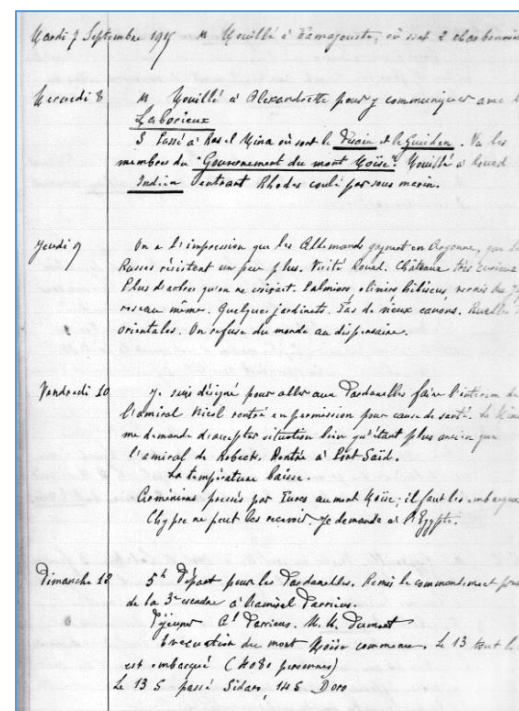 Mardi 7 Septembre 1915 M Mouillé à Famagouste, où sont 2 charbonniers
Mercredi 8 M Mouillé à Alexandrette pour y communiquer avec le
Laborieux
S Passé à Ras el Mina où sont le Desaix et le Guichen. Vu les
membres du "Gouvernement du mont Moïse". Mouillé à Rouad
Indien rentrant Rhodes coulé par sous marin.
Jeudi 9 On a l'impression que les Allemands gagnent en Argonne, que les
Russes résistent un peu plus. Visité Rouad. Château très curieux
Plus d'arbres qu'on ne croyait. Palmiers oliviers hibiscus
même. Quelques jardinets. Tas de vieux canons. Ruelles
orientales. On refuse du monde au dispensaire.
Vendredi 10 Je suis désigné pour aller aux Dardanelles faire l'intérim de
l'amiral Nicol rentré en permission pour cause de santé. Le
me demande d'accepter situation bien qu'étant plus ancien que
l'amiral de Robeck. Rentré à Port Saïd.
La température baisse.
Arméniens pressés par Turcs au mont Moïse; il faut les embarquer
Chypre ne peut les recevoir. Je demande à l'Egypte.
Dimanche 12 5h Départ pour les Dardanelles. Remis le commandement
de la 3e escadre à l'amiral Darrieus.
Déjeuner Al Darrieus. M. M. Dumont
Evacuation du mont Moïse commence. Le 13 tout le
est embarqué (4080 personnes)
Le 13 S passé Sidaro, 14 S Doro